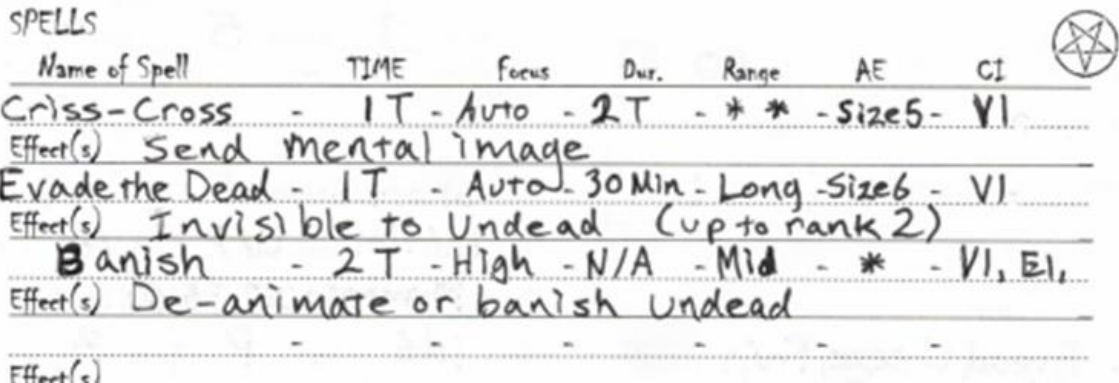 SPELLS
Name of Spell TIME Focus Dur. Range AE CI
Criss-Cross - 1T - Auto - 2T - * * - Size5 - VI
Effect(s) Send mental image
Evade the Dead - 1T - Auto - 30 Min - Long - Size6 - VI
Effect(s) Invisible to Undead (up to rank 2)
Banish - 2T - High - N/A - Mid - * - VI, EI,
Effect(s) De-animate or banish undead
- - - - - -
Effect(s)